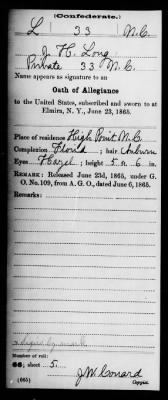 (Confederate.)
L 33 N.C.
J. H. Long
Private 33 N.C.
Name appears as signature to an
Oath of Allegiance
to the United States, subscribed and sworn to at
Elmira, N. Y., June 23, 1865.
Place of residence High Point N.C.
Complexion Florid ; hair Auburn
Eyes Hazel ; height 5 ft. 6 in.
REMARK: Released June 23d, 1865, under G.
O. No. 109, from A. G. O., dated June 6, 1865.
Remarks:
Signs by mark
Number of roll:
sheet 5
J W Conard
(665) Copyist.